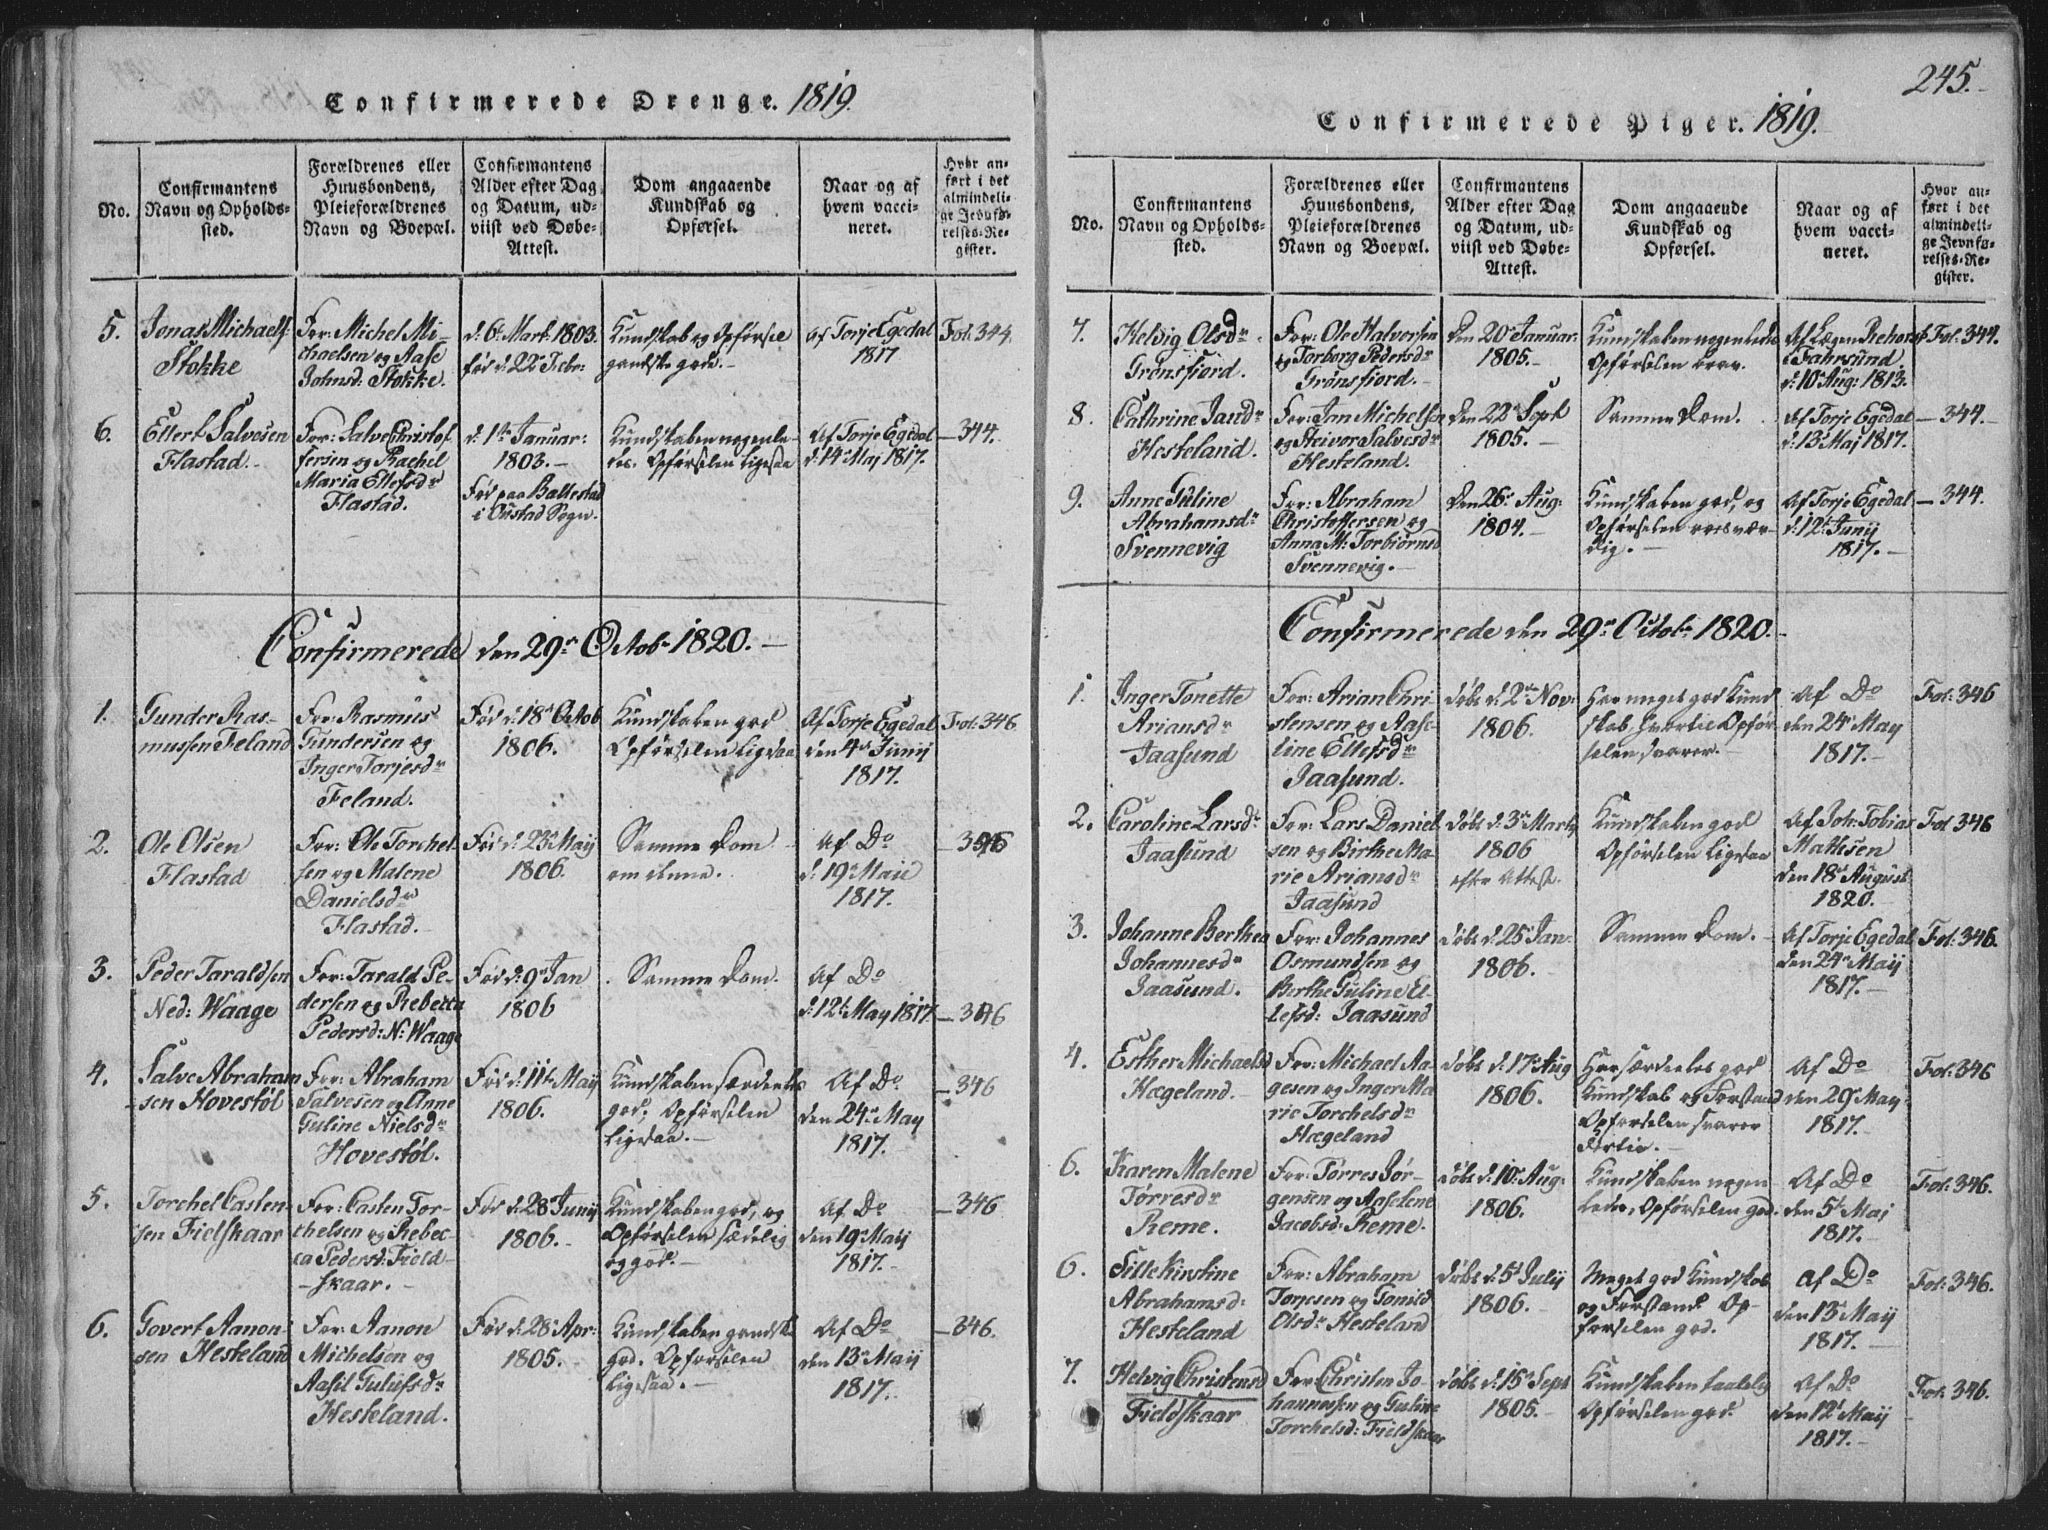 Confirmerede Drenge. 1819.
No.
Confirmantens
Navn og Opholds-
sted.
Forældrenes eller
Huusbondens,
Pleieforældrenes
Navn og Boepæl.
Confirmantens
Alder efter Dag
og Datum, ud-
viist ved Døbe-
Attest.
Dom angaaende
Kundskab og
Opførsel.
Naar og af
hvem vacci-
neret.
Hvor an-
ført i det
almindeli-
ge Jevnfø-
relses-Re-
gister.
5.
Jonas Michaels:
Stokke
For: Michel Mi-
chaelsen og Aase
Johnsd: Stokke.
d. 6t Mart. 1803.
fød d: 22de Febr:
Kundskab og Opførsel
gandske gode.-
af Torje Egedal
1817
Fol. 344.
6.
Ellert Salvesen
Flastad.
For: Salve Christof
fersen og Rachel
Maria Ellefsdr
Flastad.
d: 1te Januar:
1803.-
Fød paa Ballestad
i Oustad Sogn.
Kundskaben nogenle-
des. Opførselen ligesaa
Af Torje Egedal
d: 14de Maj 1817.
- 344.
Confirmerede den 29de Octobr 1820.-
1.
Gunder Ras-
mussen Feland
For: Rasmus
Gundersen og
Inger Torjesdr
Feland.
Fød d: 18de Octob
1806.
Kundskaben god
Opførselen ligesaa
Af Torje Egedal
den 4de Junij
1817.
Fol: 346
2.
Ole Olsen
Flastad
For: Ole Torchel
sen og Malene
Danielsdr
Flastad.
Fød d: 23de Maij
1806.
Samme Dom
om denne.
Af Do
d: 19de Maii
1817.
- 346
3.
Peder Taraldsen
Ned: Waage
For: Tarald Pe-
dersen og Rebecca
Pedersd: N: Waage
Fød d: 9de Jan
1806
Samme Dom.
Af Do
d: 12te May 1817.
- 346
4.
Salve Abraham
sen Hovestøl
For: Abraham
Salvesen og Anne
Guline Nielsdr
Hovestøl.
Fød d: 11te Maij
1806.
Kundskaben særdeeles
god; Opførselen
ligesaa.-
Af Do
den 24de May
1817.-
- 346
5.
Torchel Casten-
sen Fielskaar
For: Casten Tor-
chelsen og Rebec-
ca Pedersd: Field-
skaar.-
Fød d: 28de Junij
1806.-
Kundskaben god, og
Opførselen sædelig
og god.-
Af Do
den 19de Maij
1817.-
- 346
6.
Govert Aanon-
sen Hesteland
For: Aanon
Michelsen og
Aasil Gulufsdr
Hesteland.
Fød d: 28de Apr:
1805.-
Kundskaben gandske
god. Opførselen
ligesaa.-
Af Do
den 13de Maij
1817.-
- 346.
245.
Confirmerede Piger. 1819.
No.
Confirmantens
Navn og Opholds-
sted.
Forældrenes eller
Huusbondens,
Pleieforældrenes
Navn og Boepæl.
Confirmantens
Alder efter Dag
og Datum, ud-
viist ved Døbe-
Attest.
Dom angaaende
Kundskab og
Opførsel.
Naar og af
hvem vacci-
neret.
Hvor an-
ført i det
almindeli-
ge Jevnfø-
relses-Re-
gister.
7.
Helvig Olsdr
Grønsfiord.
For: Ole Halvorsen
og Torborg Pedersdr
Grønsfiord.
Den 20de Januar
1805.-
Kundskaben nogenledes
Opførselen brav.
Af Lægen
i Fahrsund
d: 10de Aug: 1813.
Fol: 344.
8.
Cathrine Jansdr
Hesteland.
For: Jan Michelsen
og Steivor Salvesdr
Hesteland.
Den 22de Sept
1805.-
Samme Dom.
Af Torje Egedal
d: 13de Maj 1817.
- 344.
9.
Anne Guline
Abrahamsdr
Svennevig
For: Abraham
Christoffersen og
Anna M: Torbiørnsd
Svennevig.-
Den 26de Aug:
1804.-
Kundskaben god, og
Opførselen roesvær-
dig.-
Af Torje Egedal
d: 12te Junij
1817.-
- 344.
Confirmerede den 29de Octobr 1820.-
1.
Inger Tonette
Ariansdr
Jaasund
For: Arian Chri-
stensen og Aase-
line Ellefsdr
Jaasund.
døbt d: 2den Nov:
1806.
Har meget god Kund
skab, hvortil Opfør-
selen svarer.-
Af Do
den 24de May
1817.-
Fol: 346
2.
Caroline Larsdr
Jaasund
For: Lars Daniel
sen og Birthe Ma-
rie Ariansdr
Jaasund
døbt d: 3de Marty
1806
efter Attest.
Kundskaben god
Opførselen ligesaa
Af Joh: Tobias
Mathisen
den 18de August
1820.-
Fol 346
3.
Johanne Berthea
Johannesdr
Jaasund.
For: Johannes
Osmundsen og
Berthe Guline El-
lefsd: Jaasund
døbt d: 25de Jan-
1806.
Samme Dom.-
Af Torje Egedal
den 24de Maij
1817.-
Fol: 346.
4.
Esther Michaelsd
Hægeland.
For: Michael Aa-
gesen og Inger Ma
rie Torchelsdr
Hægeland
døbt d: 17de Aug
1806.
Har særdeeles god
Kundskab og Forstand
Opførselen svarer
dertil.-
Af Do
den 29de May-
1817.-
Fol: 346
6.
Karen Malene
Tørresdr
Reme.
For: Tørres Jør-
gensen og Aaselene
Jacobsd: Reme.
døbt d: 10de Aug:
1806.
Kundskaben nogen
ledes, Opførselen god.
Af Do
den 5te Maj
1817.-
Fol: 346.
6.
Sille Kirstine
Abrahamsd:
Hesteland
For: Abraham
Torjesen og Gonild
Olsdr Hesteland
døbt d: 5te Julij
1806.-
Meget god Kundskab
og Forstand. Op-
førselen god.
Af Do
den 13de Maij
1817.-
Fol: 346.
7.
Helvig Christensd
Fieldskaar
For: Christen Jo-
hannessen og Guline
Torchelsd: Fieldskaar
døbt d: 15de Sept
1805.-
Kundskaben taalelig
Opførselen god.
Af Do
den 12te Maij
1817.-
Fol: 346.